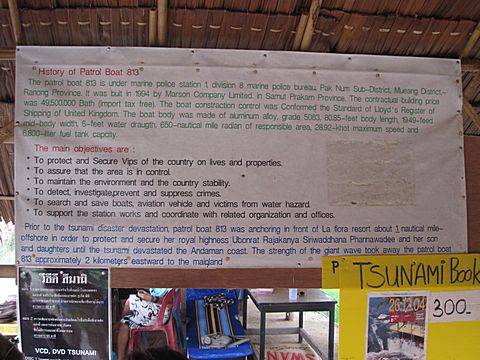 History of Patrol Boat 813
The patrol boat 813 is under marine police station 1 division 8 marine police bureau. Pak Num Sub-District, Mueang District,-
Ranong Province. It was built in 1994 by Marson Company Limited. in Samut Prakarn Province. The contractual building price
was 49,500,000 Bath (import tax free). The boat constraction control was Conformed the Standard of Lloyd's Register of
Shipping of United Kingdom. The boat body was made of aluminum alloy, grade 5083, 80.85-feet body length, 19.49-feed
mid-body width, 6-feet water draugth, 650-nautical mile radian of responsible area, 28.92-khot maximum speed and
6,800-liter fuel tank capcity.
The main objectives are :
* To protect and Secure Vips of the country on lives and properties.
* To assure that the area is in control.
* To maintain the environment and the country stability.
* To detect, investigate,prevent and suppress crimes.
* To search and save boats, aviation vehicle and victims from water hazard.
* To support the station works and coordinate with related organization and offices.
Prior to the tsunami disaster devastation, patrol boat 813 was anchoring in front of La flora resort about 1 nautical mile-
offshore in order to protect and secure her royal highness Ubonrat Rajakanya Siriwaddhana Phannawadee and her son
and daughters until the tsunami devastated the Andaman coast. The strength of the giant wave took away the patrol boat
813 approximately 2 kilometers eastward to the mainland
วีซีดี สึนามิ
VCD, DVD TSUNAMI
P
TSUNAMI Book
26.12.04
300.-